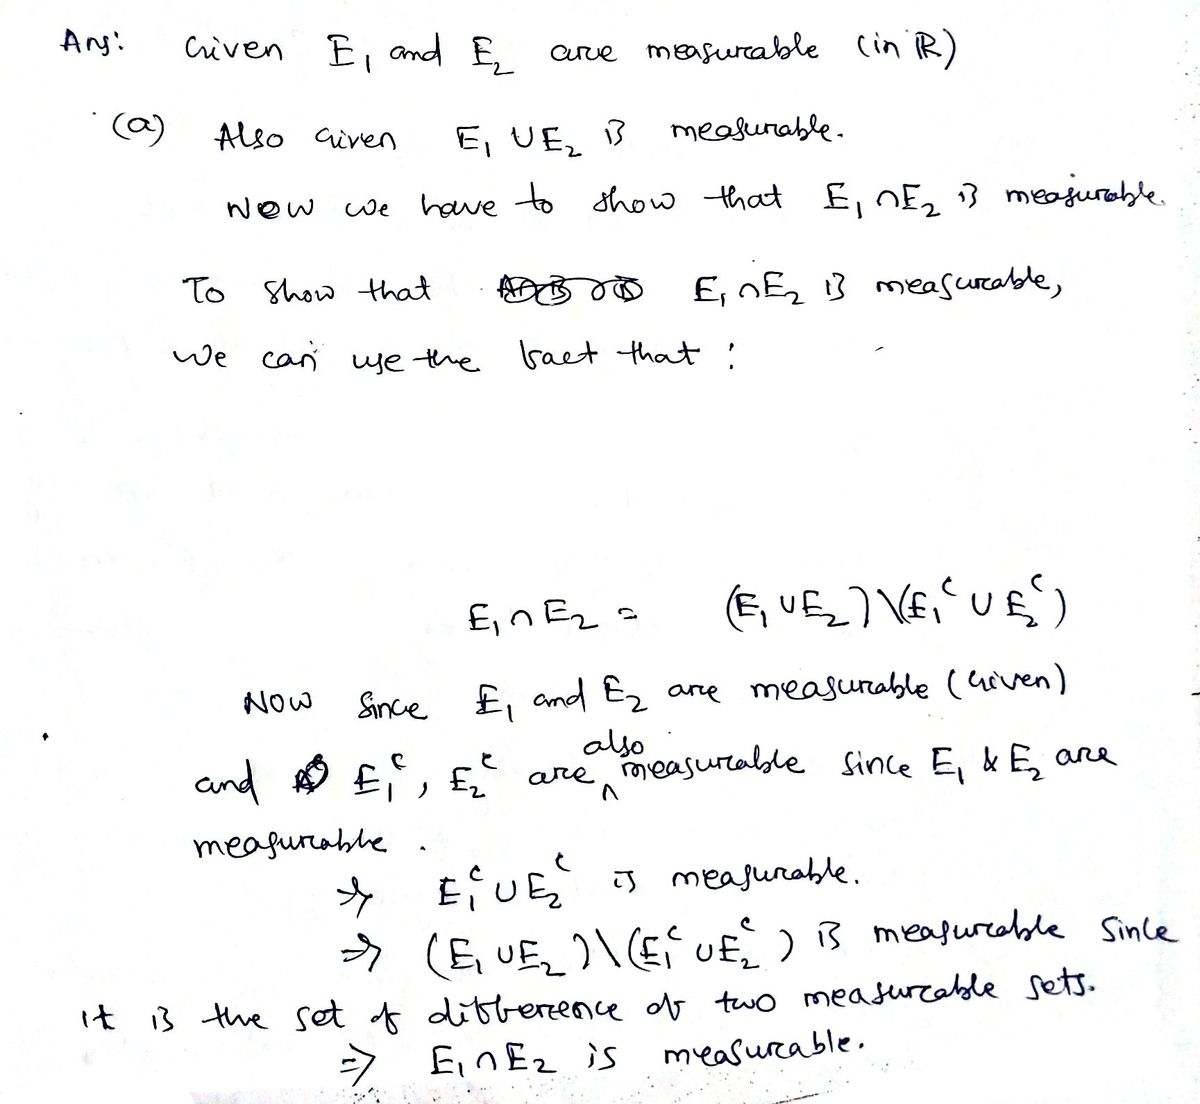 Ans: Given E₁ and E₂ are measurable (in ℝ)
(a) Also Given E₁ ∪ E₂ is measurable.
Now we have to show that E₁ ∩ E₂ is measurable.
To show that E₁ ∩ E₂ is measurable,
we can use the fact that :
E₁ ∩ E₂ = (E₁ ∪ E₂) \ (E₁ᶜ ∪ E₂ᶜ)
Now since E₁ and E₂ are measurable (Given)
and E₁ᶜ, E₂ᶜ are also measurable since E₁ & E₂ are
measurable.
⇒ E₁ᶜ ∪ E₂ᶜ is measurable.
⇒ (E₁ ∪ E₂) \ (E₁ᶜ ∪ E₂ᶜ) is measurable since
it is the set of difference of two measurable sets.
⇒ E₁ ∩ E₂ is measurable.